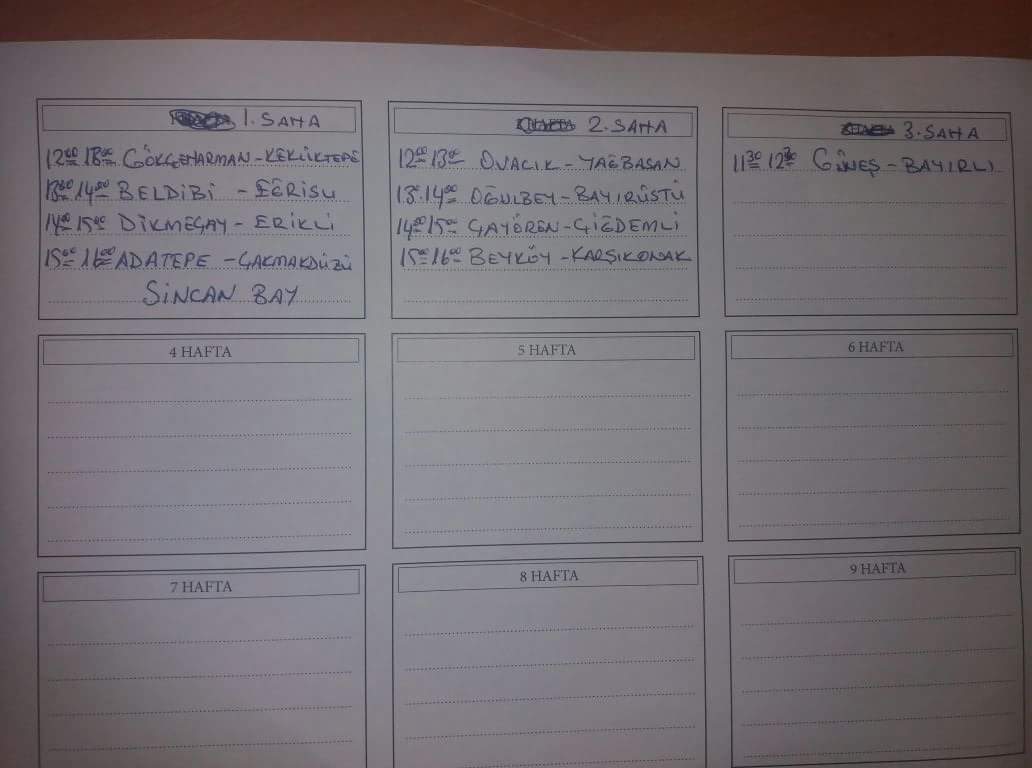 1. SAHA
12⁰⁰ 13⁰⁰ GÖKÇEHARMAN - KEKLİKTEPE
13⁰⁰ 14⁰⁰ BELDİBİ - EĞRİSU
14⁰⁰ 15⁰⁰ DİKMEÇAY - ERİKLİ
15⁰⁰ 16⁰⁰ ADATEPE - ÇAKMAKDÜZÜ
SİNCAN BAY
2. SAHA
12⁰⁰ 13⁰⁰ OVACIK - YAĞBASAN
13⁰⁰ 14⁰⁰ OĞULBEY - BAYIRÜSTÜ
14⁰⁰ 15⁰⁰ ÇAYÖREN - ÇİĞDEMLİ
15⁰⁰ 16⁰⁰ BEYKÖY - KARŞIKONAK
3. SAHA
11³⁰ 12³⁰ GÜNEŞ - BAYIRLI
4 HAFTA
5 HAFTA
6 HAFTA
7 HAFTA
8 HAFTA
9 HAFTA